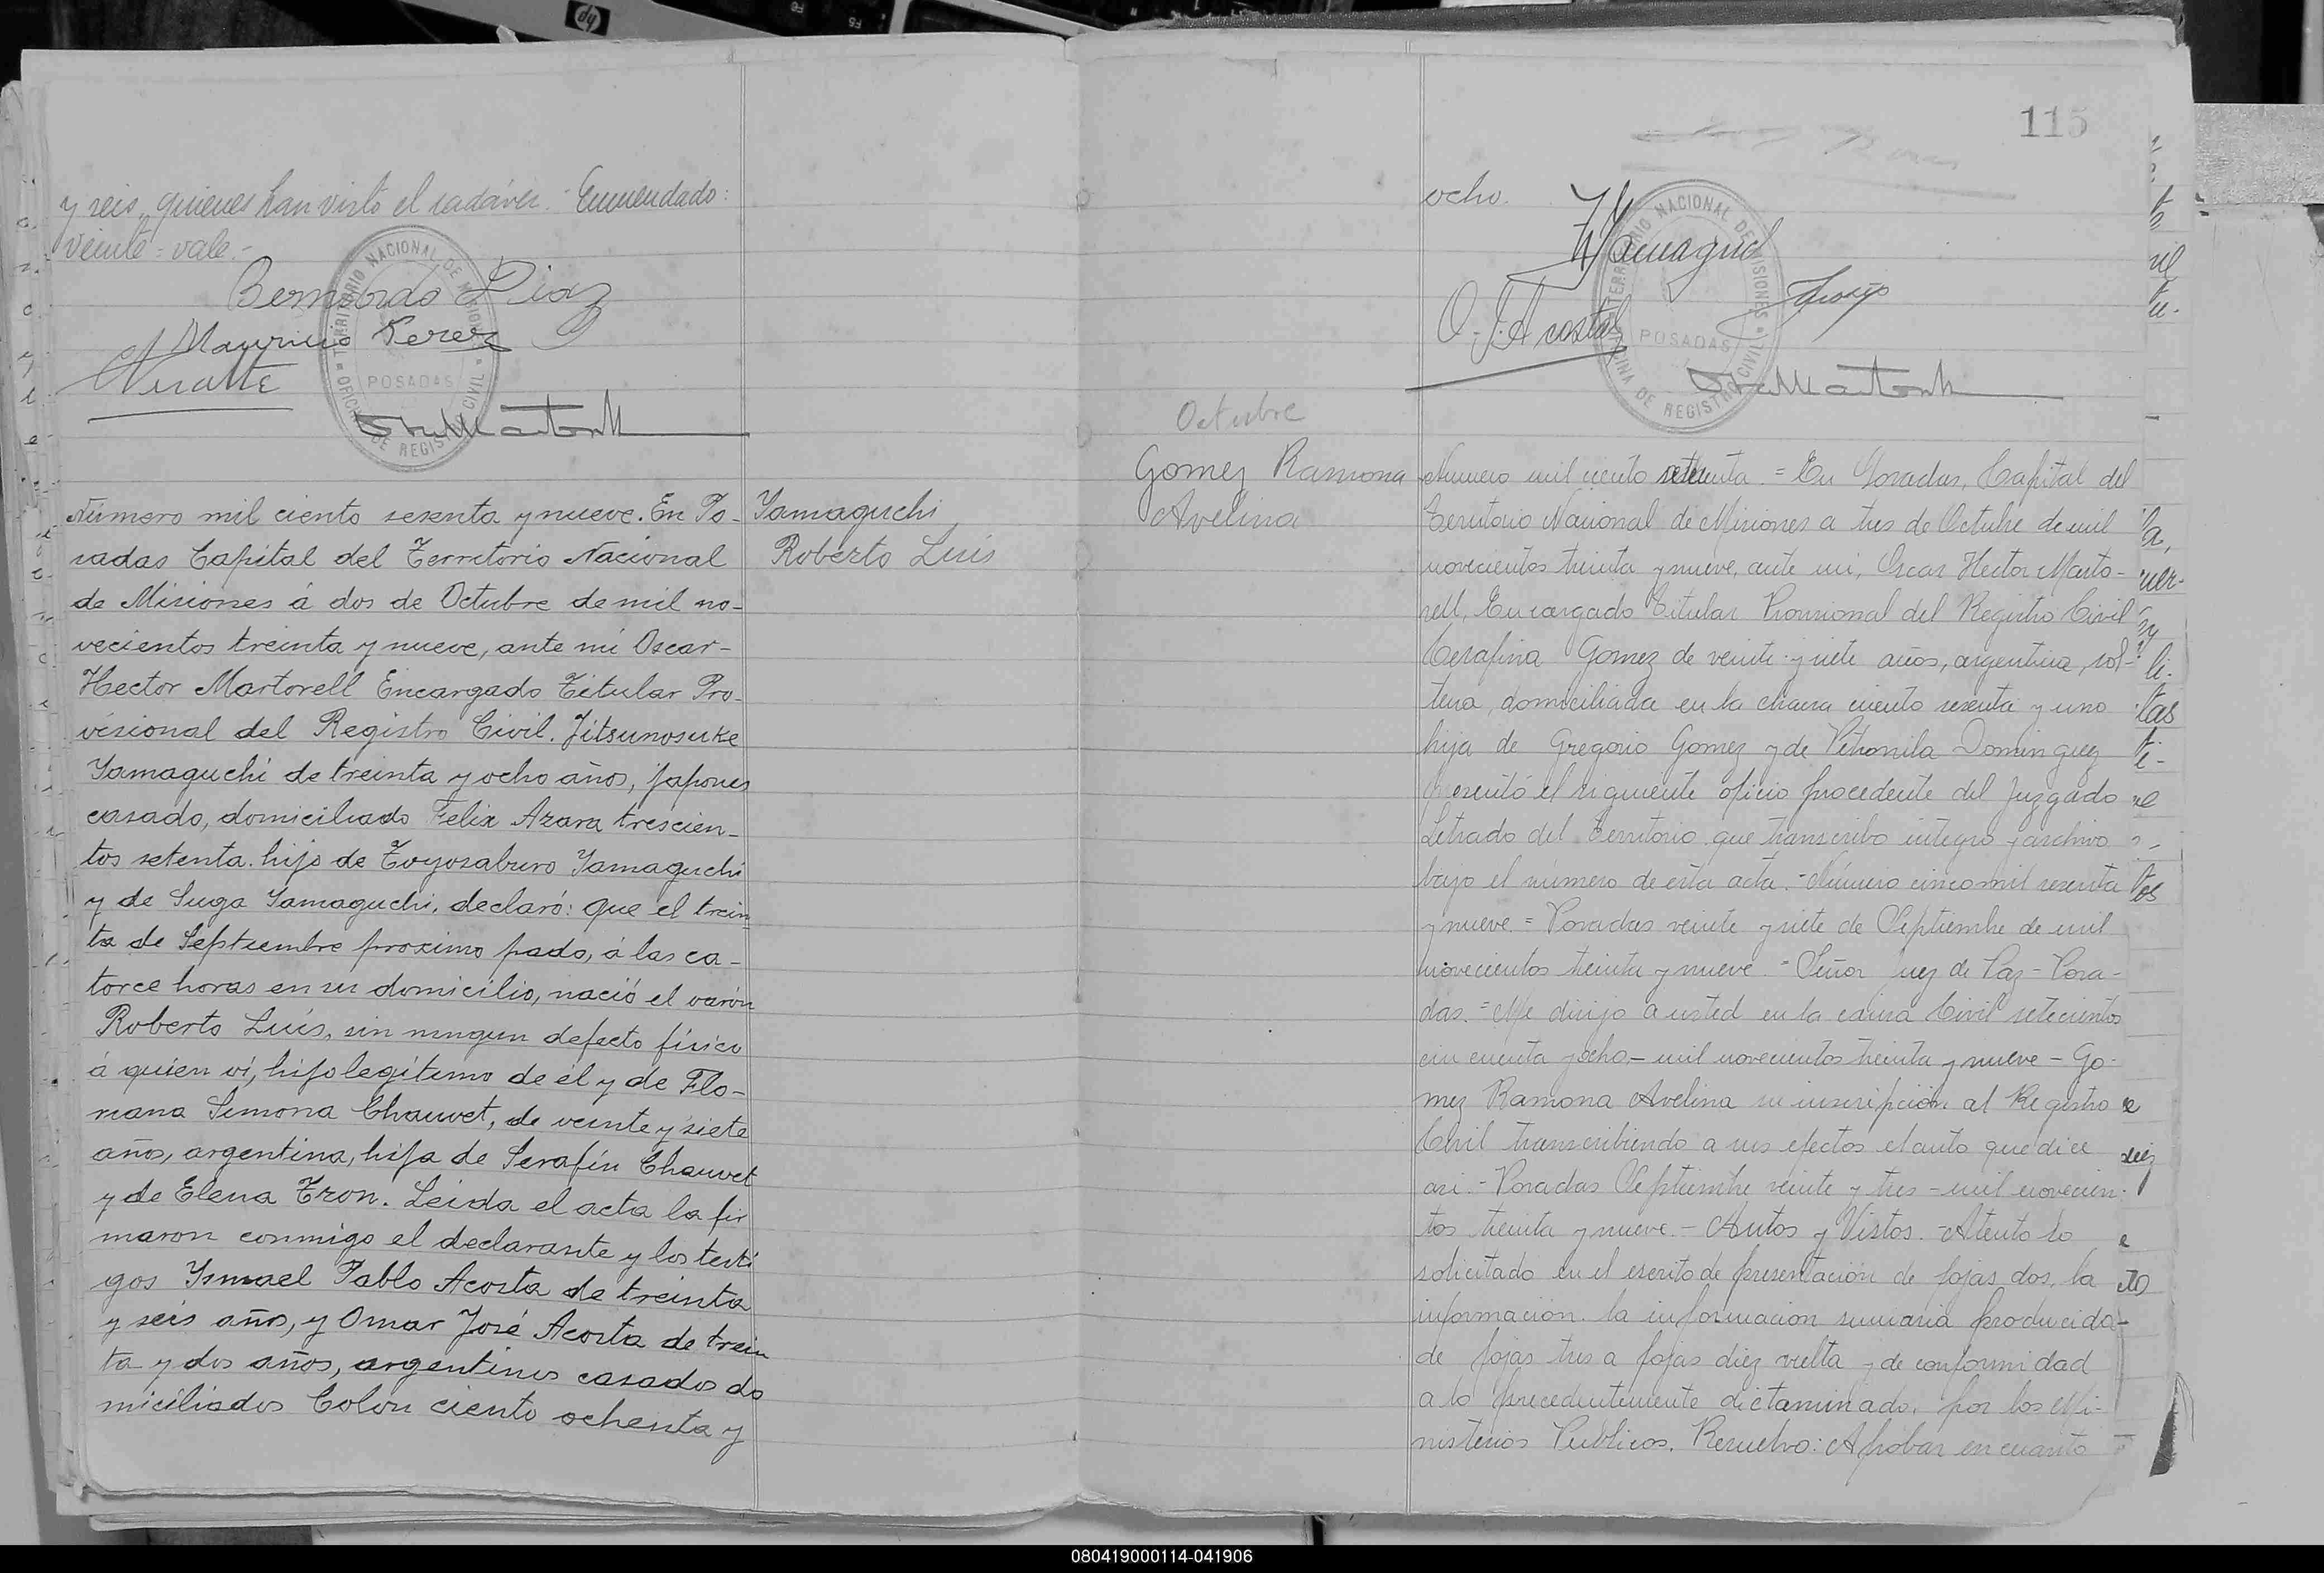 y seis, quienes han visto el cadáver.- Enmendado:
veinte = vale.-
Bernardo Diaz
Mauricio Perez
TERRITORIO NACIONAL DE MISIONES
POSADAS
OFICINA DE REGISTRO CIVIL
Número mil ciento sesenta y nueve. En Po-
sadas Capital del Territorio Nacional
de Misiones á dos de Octubre de mil no-
vecientos treinta y nueve, ante mi Oscar-
Hector Martorell Encargado Titular Pro-
visional del Registro Civil. Jitsunosuke
Yamaguchi de treinta y ocho años, japones
casado, domiciliado Felix Azara trescien-
tos setenta. hijo de Toyosaburo Yamaguchi
y de Suga Yamaguchi, declaró: que el trein
ta de Septiembre proximo pado, á las ca-
torce horas en su domicilio, nació el varón
Roberto Luis, sin ningun defecto físico
á quien vi, hijo legitimo de él y de Flo-
riana Simona Chauvet, de veinte y siete
años, argentina, hija de Serafín Chauvet
y de Elena Tron. Leida el acta la fir
maron conmigo el declarante y los testi
gos Ysmael Pablo Acosta de treinta
y seis años, y Omar José Acosta de trein
ta y dos años, argentinos casados do
miciliados Colon ciento ochenta y
Yamaguchi
Roberto Luis
115
ocho.
Yamaguchi
O. J. Acosta
TERRITORIO NACIONAL DE MISIONES
POSADAS
OFICINA DE REGISTRO CIVIL
Octubre
Gomez Ramona
Avelina
Numero mil ciento setenta = En Posadas, Capital del
Territorio Nacional de Misiones a tres de Octubre de mil
novecientos treinta y nueve, ante mi, Oscar Hector Marto-
rell, Encargado Titular Provisional del Registro Civil
Cerafina Gomez de veinte y siete años, argentina, sol-
tera, domiciliada en la chacra ciento sesenta y uno
hija de Gregorio Gomez y de Petronila Dominguez
presentó el siguiente oficio procedente del Juzgado
Letrado del Territorio que transcribo integro y archivo
bajo el número de esta acta.- Número cinco mil sesenta
y nueve = Posadas veinte y siete de Septiembre de mil
novecientos treinta y nueve.- Señor Juez de Paz - Posa-
das. = Me dirijo a usted en la causa Civil setecientos
cincuenta y ocho - mil novecientos treinta y nueve - Go-
mez Ramona Avelina su inscripción al Registro
Civil transcribiendo a sus efectos el auto que dice
asi.- Posadas Septiembre veinte y tres - mil novecien-
tos treinta y nueve.- Autos y Vistos.- Atento lo
solicitado en el escrito de presentación de fojas dos, la
información. la informacion sumaria producida
de fojas tres a fojas diez vuelta y de conformidad
a lo precedentemente dictaminado, por los Mi-
nisterios Publicos. Resuelvo: Aprobar en cuanto
080419000114-041906